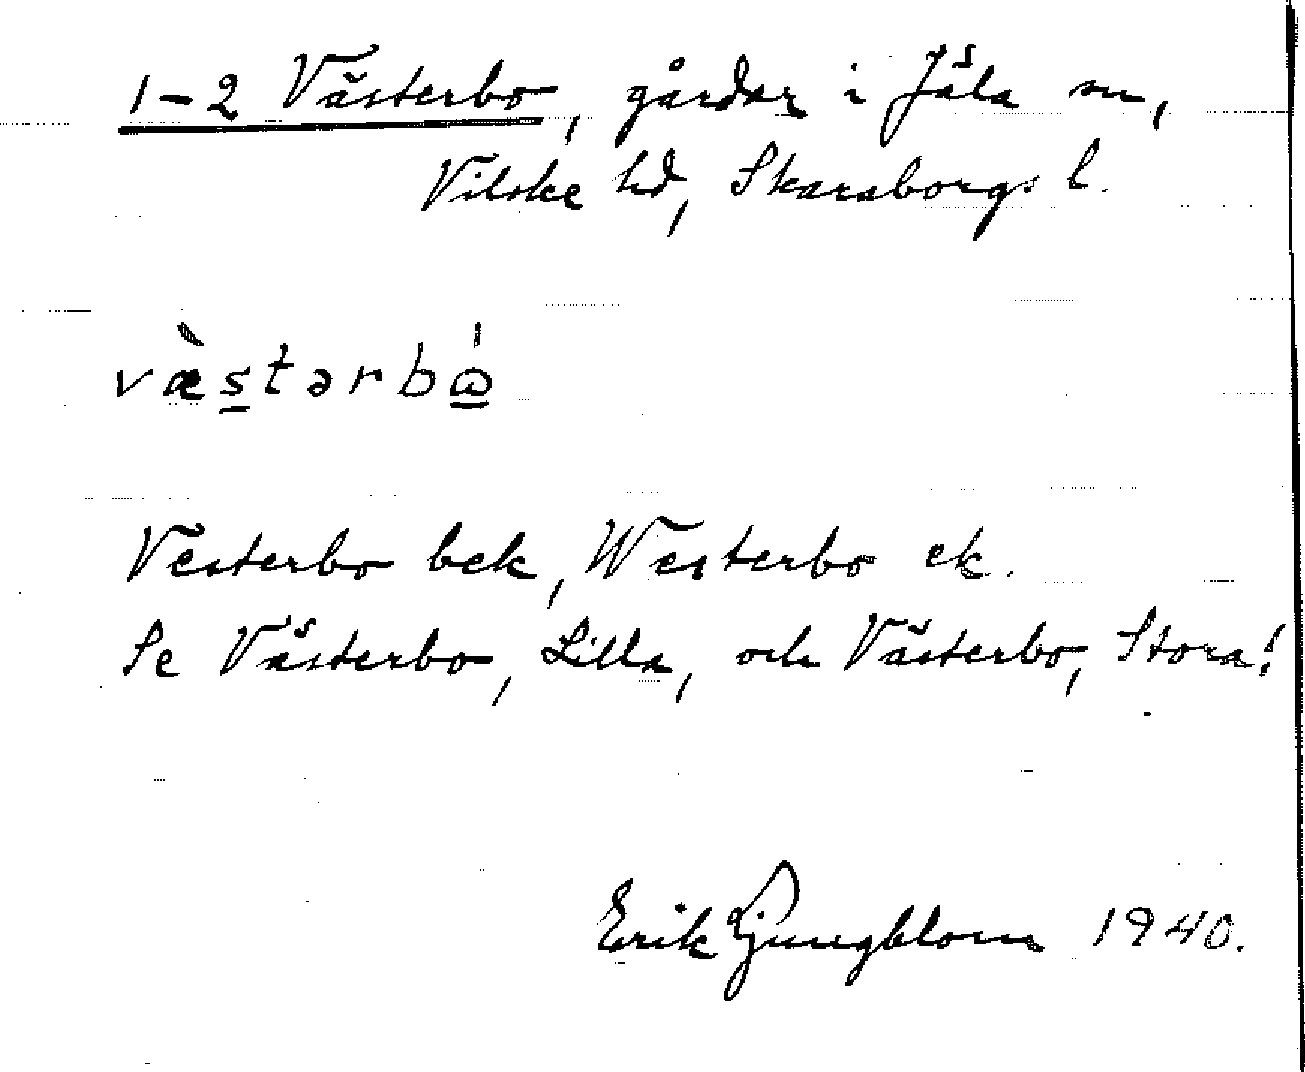 1-2 Västerbo, gårdar i Jäla sn,
Vilske hd, Skaraborgs l.
væ̀stərbɷ́
Vesterbo bek, Westerbo ek.
Se Västerbo, Lilla, och Västerbo, Stora!
Erik Ljungblom 1940.